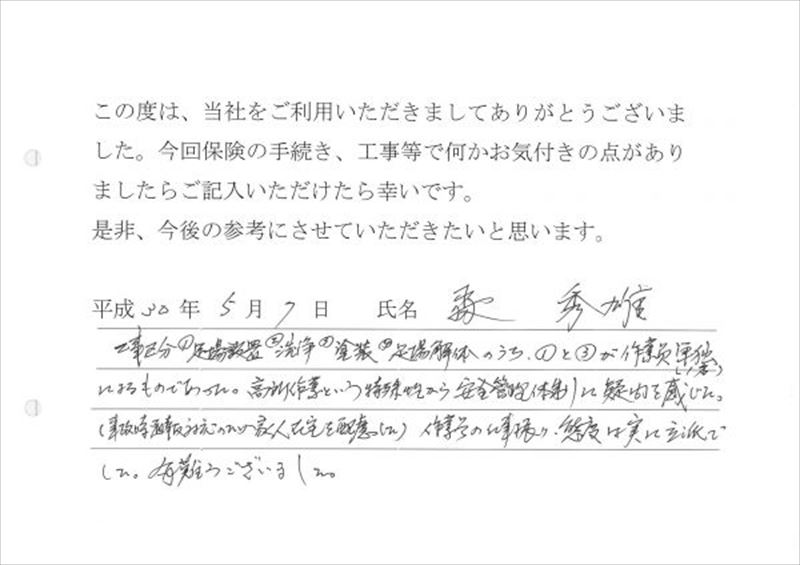 この度は、当社をご利用いただきましてありがとうございま
した。今回保険の手続き、工事等で何かお気付きの点があり
ましたらご記入いただけたら幸いです。
是非、今後の参考にさせていただきたいと思います。
平成 30 年 5 月 7 日 氏名 森 秀雄
工事区分①足場設置②洗浄③塗装④足場解体のうち、①と③が作業員単独
によるものであった。高所作業という特殊性から安全管理体制に疑問を感じた。
(事故時 対応のため家人在宅を配慮した) 作業等の仕事振り、態度は実に立派で
した。有難うございました。